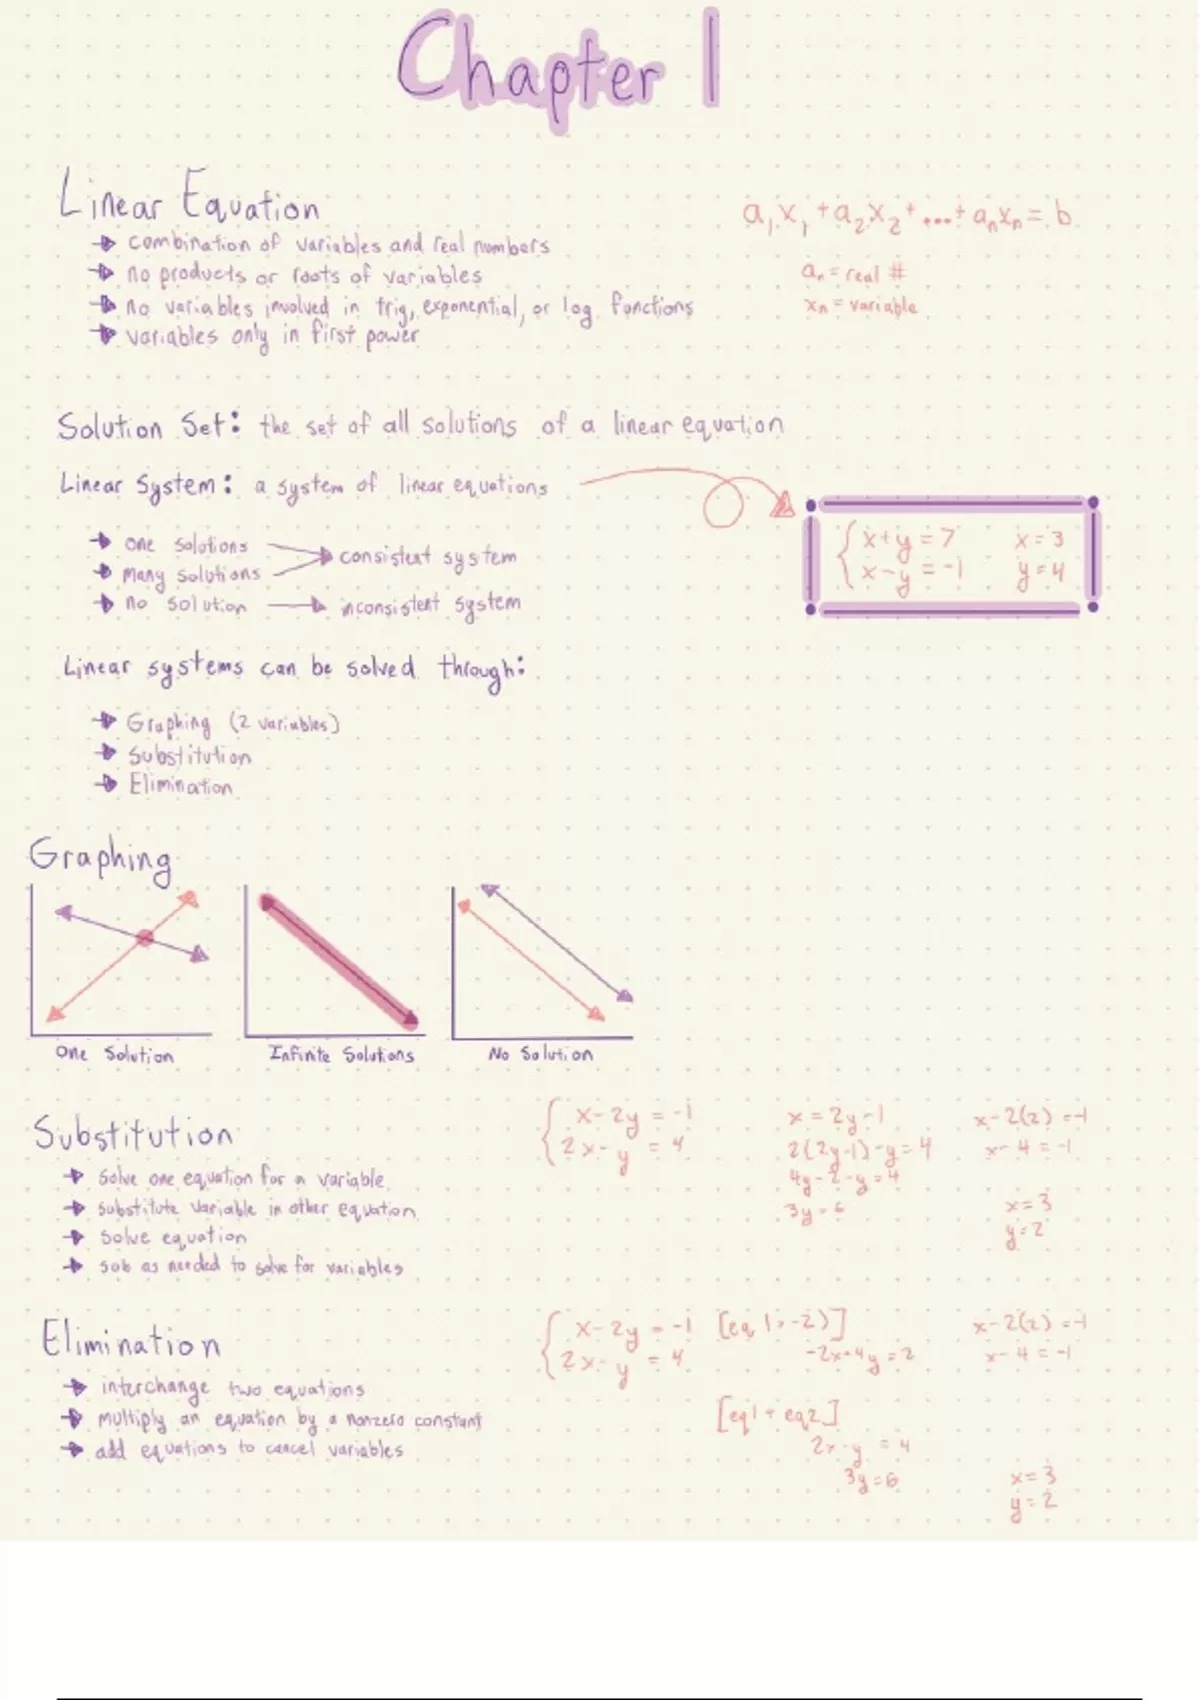 Chapter 1
Linear Equation
→ combination of variables and real numbers
→ no products or roots of variables
→ no variables involved in trig, exponential, or log functions
→ variables only in first power
a₁x₁ + a₂x₂ + ... + aₙxₙ = b
aₙ = real #
xₙ = variable
Solution Set: the set of all solutions of a linear equation
Linear System: a system of linear equations
→ one solutions
→ many solutions
→ consistent system
→ no solution → inconsistent system
x+y = 7 x = 3
x-y = -1 y = 4
Linear systems can be solved through:
→ Graphing (2 variables)
→ Substitution
→ Elimination
Graphing
One Solution
Infinite Solutions
No Solution
Substitution
→ solve one equation for a variable
→ substitute variable in other equation
→ solve equation
→ sub as needed to solve for variables
x-2y = -1
2x-y = 4
x = 2y-1
2(2y-1)-y = 4
4y-2-y = 4
3y = 6
x-2(2) = -1
x-4 = -1
x = 3
y = 2
Elimination
→ interchange two equations
→ multiply an equation by a nonzero constant
→ add equations to cancel variables
x-2y = -1
2x-y = 4
[eq 1·-2)]
-2x+4y = 2
[eq1 + eq2]
2x-y = 4
3y = 6
x-2(2) = -1
x-4 = -1
x = 3
y = 2